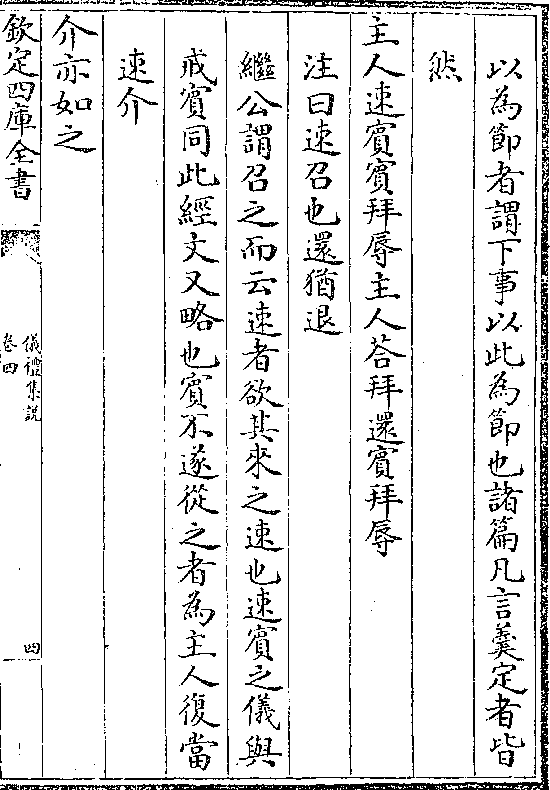 以為節者謂下事以此為節也諸篇凡言羹定者皆
然
主人速賓賓拜辱主人荅拜還賓拜辱
注曰速召也還猶退
繼公謂召之而云速者欲其來之速也速賓之儀與
戒賓同此經文又略也賓不遂從之者為主人復當
速介
介亦如之
欽定四庫全書
儀禮集說
卷四
四